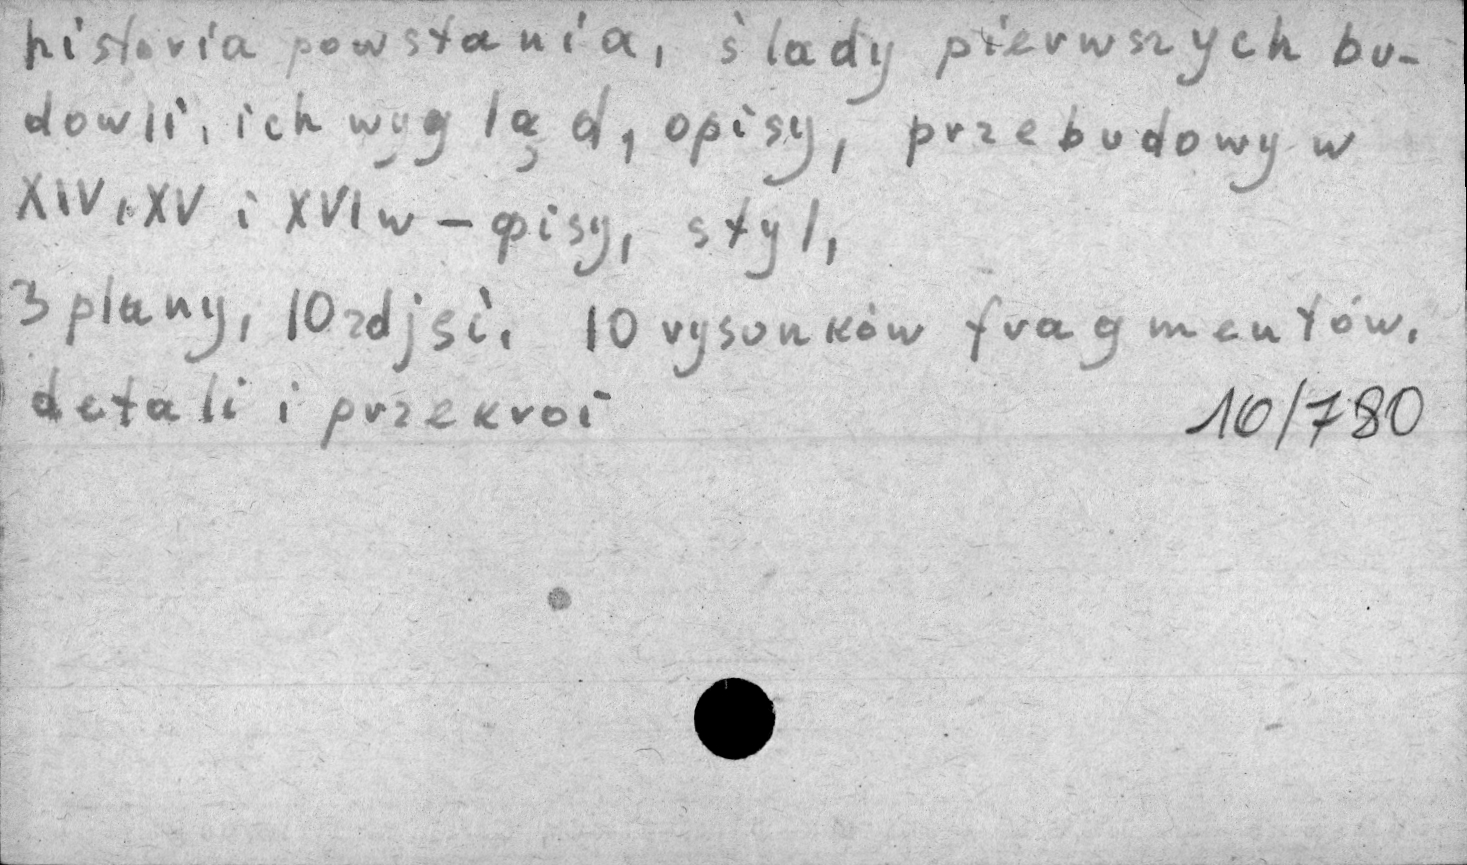 historia powstania, ślady pierwszych bu-
dowli, ich wygląd, opisy, przebudowy w
XIV, XV i XVI w - opisy, styl,
3 plany, 10 zdjść, 10 rysunków fragmentów,
detali i przekroi 10/780